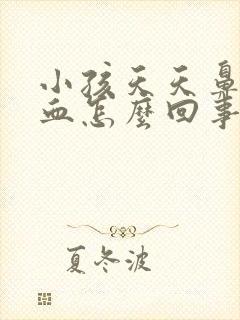 小孩天天鼻
血怎麼回事
夏冬波